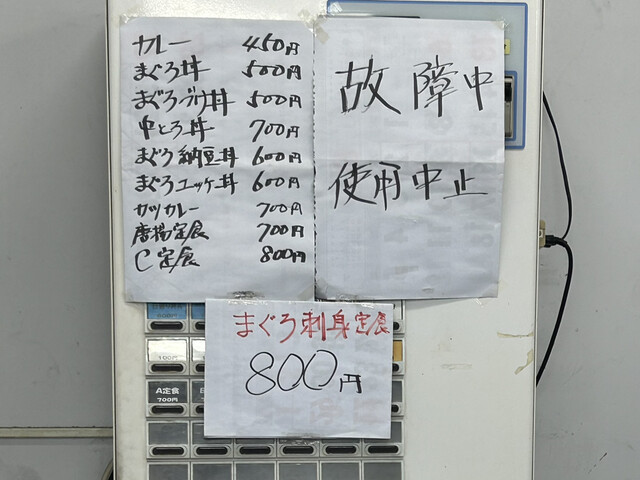 カレー 450円
まぐろ丼 500円
まぐろブツ丼 500円
中とろ丼 700円
まぐろ納豆丼 600円
まぐろユッケ丼 600円
カツカレー 700円
唐揚定食 700円
C定食 800円
故障中
使用中止
まぐろ刺身定食
800円
100円
A定食
700円